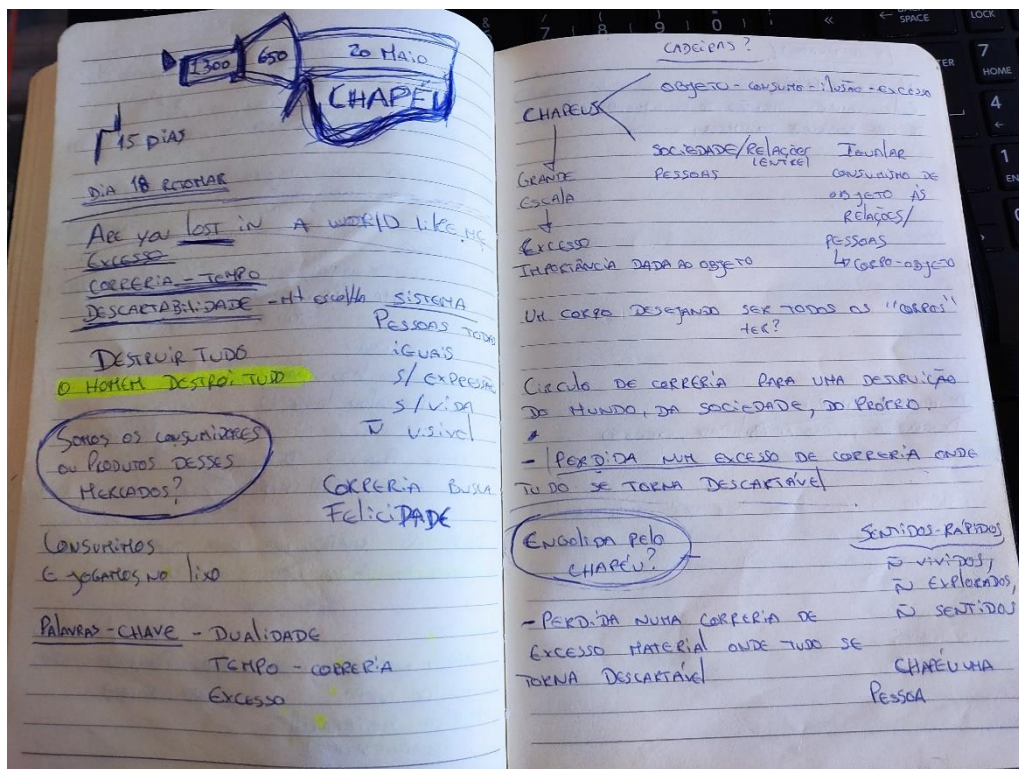 1300 650 20 MAIO
CHAPÉU
15 DIAS
DIA 18 RETOMAR
ARE YOU LOST IN A WORLD LIKE ME
EXCESSO
CORRERIA - TEMPO
DESCARTABILIDADE - Mt escolha
SISTEMA
PESSOAS TODAS
IGUAIS
S/ EXPRESSÃO
S/ VIDA
Ñ VISIVEL
DESTRUIR TUDO
O HOMEM DESTROI TUDO
SOMOS OS CONSUMIDORES
OU PRODUTOS DESSES
MERCADOS?
CORRERIA BUSCA
FELICIDADE
CONSUMIMOS
E JOGAMOS NO LIXO
PALAVRAS-CHAVE - DUALIDADE
TEMPO - CORRERIA
EXCESSO
CADEIRAS?
CHAPEUS
OBJETO - CONSUMO - ILUSÃO - EXCESSO
SOCIEDADE/RELAÇÕES
(ENTRE)
PESSOAS
IGUALAR
CONSUMISMO DE
OBJETO ÀS
RELAÇÕES/
PESSOAS
CORPO-OBJETO
GRANDE
ESCALA
EXCESSO
IMPORTÂNCIA DADA AO OBJETO
UM CORPO DESEJANDO SER TODOS OS "CORPOS"
TER?
CIRCULO DE CORRERIA PARA UMA DESTRUIÇÃO
DO MUNDO, DA SOCIEDADE, DO PRÓPRIO.
- PERDIDA NUM EXCESSO DE CORRERIA ONDE
TUDO SE TORNA DESCARTÁVEL
ENGOLIDA PELO
CHAPÉU?
SENTIDOS-RÁPIDOS
Ñ VIVIDOS,
Ñ EXPLORADOS,
Ñ SENTIDOS
- PERDIDA NUMA CORRERIA DE
EXCESSO MATERIAL ONDE TUDO SE
TORNA DESCARTÁVEL
CHAPÉU UMA
PESSOA
& 7 8 9 0
BACK
SPACE
LOCK
7
HOME
4
1